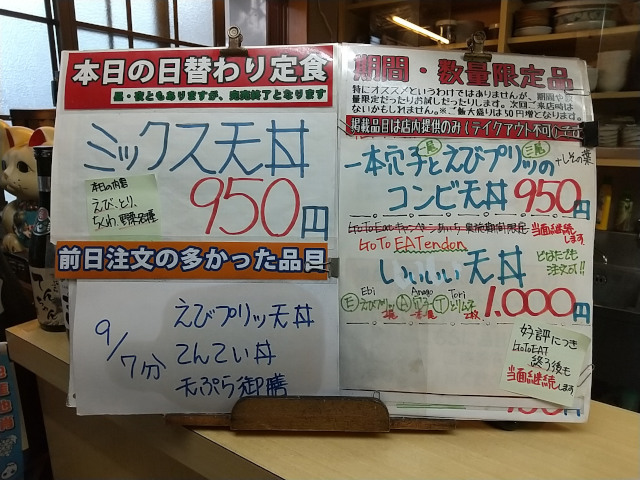 本日の日替わり定食
昼・夜ともありますが、完売終了となります
ミックス天丼
本日の内容
えび、とり、
ちくわ、野菜2種
950円
前日注文の多かった品目
9/7分
えびプリッ天丼
てんてい丼
天ぷら御膳
期間・数量限定品
特にオススメというわけではありませんが、期間や数
量限定だったりお試しだったりします。次回ご来店時は
ないかもしれません。※ご飯大盛りは50円増となります。
掲載品目は店内提供のみ(テイクアウト不可)です
一本穴子とえびプリッの
+しその葉
コンビ天丼 950円
当面継続
します
GoTo EATendon
どなたでも
注文可!!
いいいい天丼
Ebi Anago Tori
E えびプリッ 2尾 A 穴子 一本 T とりムネ 2枚
1.000円
好評につき
GoTo EAT
終了後も
当面継続します